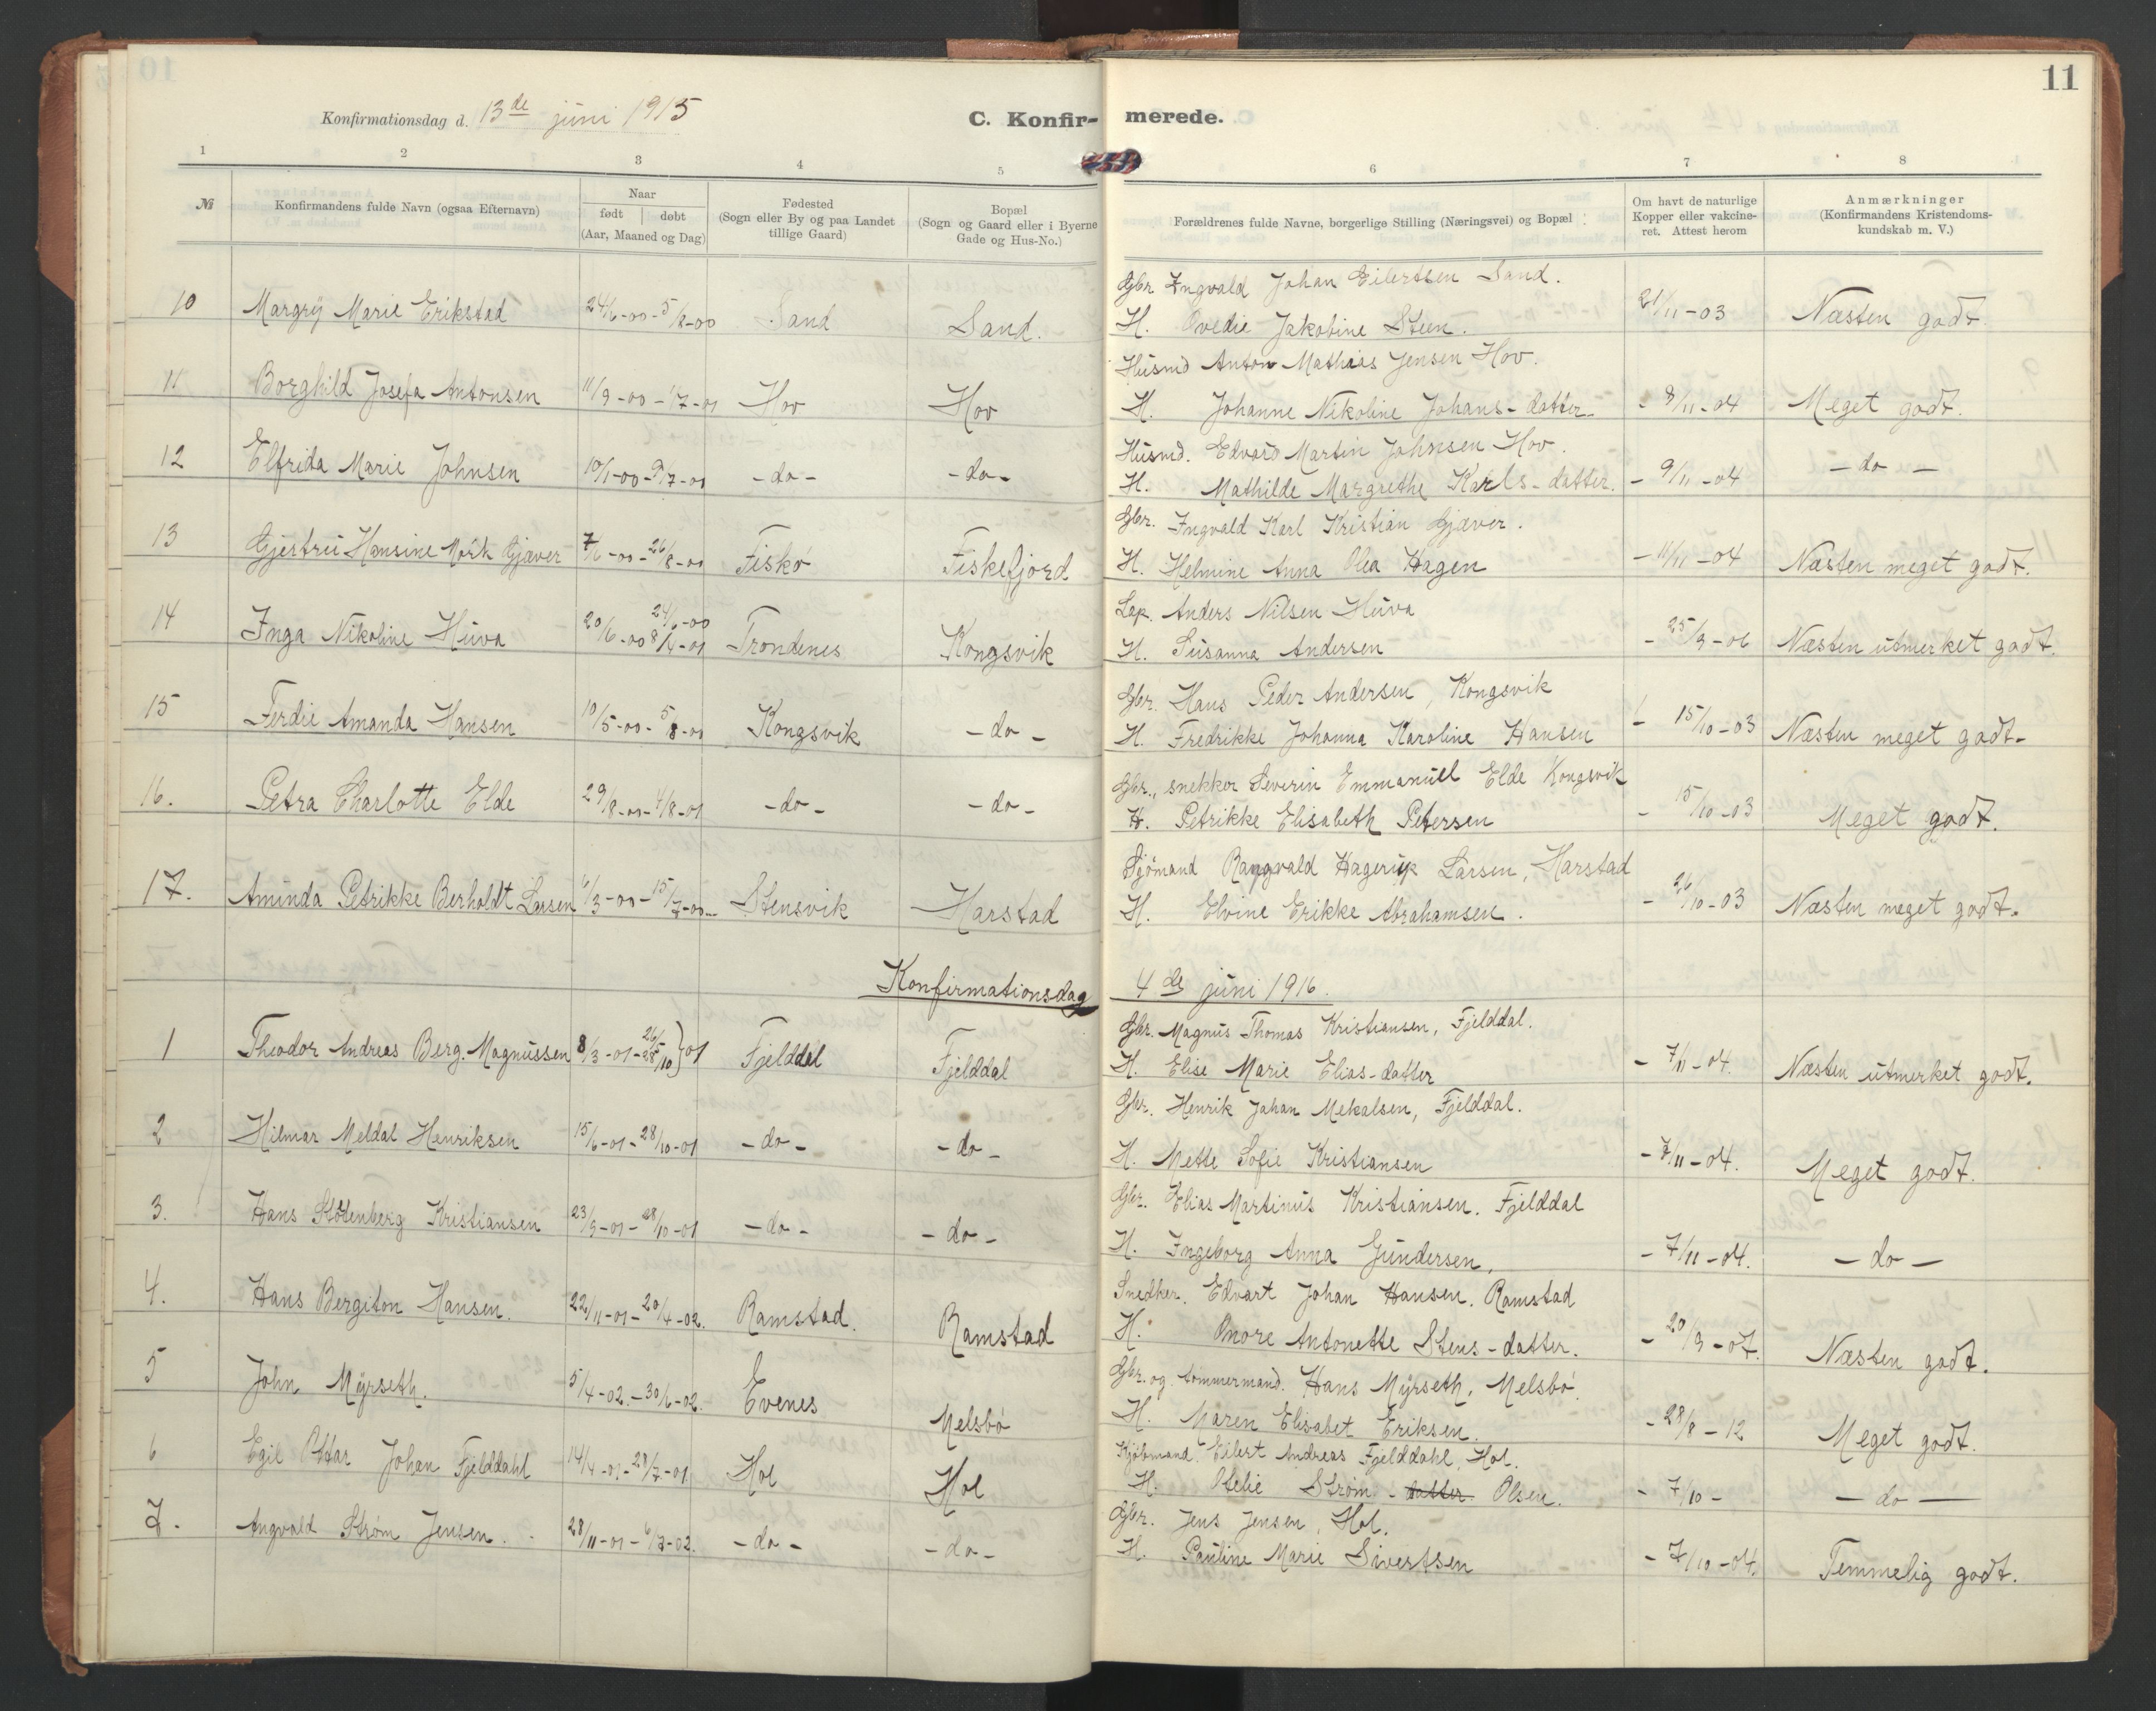 11
Konfirmationsdag d. 13de juni 1915
C. Konfirmerede.
1 2 3 4 5 6 7 8
№ Konfirmandens fulde Navn (ogsaa Efternavn) Naar født døbt (Aar, Maaned og Dag) Fødested (Sogn eller By og paa Landet tillige Gaard) Bopæl (Sogn og Gaard eller i Byerne Gade og Hus-No.) Forældrenes fulde Navne, borgerlige Stilling (Næringsvei) og Bopæl Om havt de naturlige Kopper eller vakcineret. Attest herom Anmærkninger (Konfirmandens Kristendomskundskab m. V.)
Gbr. Ingvald Johan Eilertsen Sand.
10 Margry Marie Erikstad 24/6-00 - 5/8-00 Sand Sand. H. Ovedie Jakobine Steen. 21/11-03 Næsten godt.
Husmd Anton Mathias Jensen Hov.
11 Borghild Josefa Antonsen 11/9-00 - 1/7-01 Hov Hov H. Johanne Nikoline Johans-datter - 8/11-04 Meget godt.
Husmd. Edvard Martin Johnsen Hov.
12 Elfrida Marie Johnsen 10/1-00 - 9/7-00 -do- -do- H. Mathilde Margrethe Karls-datter. - 9/11-04 -do-
Gbr. Ingvald Karl Kristian Gjæver.
13 Gjestru Hansine Mørk Gjæver 7/6-00 - 26/8-00 Fiskø Fiskefjord H. Helmine Anna Olea Hagen - 11/11-04 Næsten meget godt.
Lap. Anders Nilsen Huva
14 Inga Nikoline Huva 20/6-00 24/6-00 8/4-01 Trondenes Kongsvik H. Susanna Andersen - 25/9-06 Næsten utmerket godt.
Gbr. Hans Peder Andersen, Kongsvik
15 Ferdie Amanda Hansen 10/5-00 - 5/8-00 Kongsvik -do- H. Fredrikke Johanna Karoline Hansen - 15/10-03 Næsten meget godt-
Gbr., snekker Severin Emmanuel Elde Kongsvik
16. Petra Charlotte Elde 29/8-00 - 4/8-01 -do- -do- H. Petrikke Elisabeth Petersen - 15/10-03 Meget godt.
Sjømand Rangvald Hagerup Larsen, Harstad
17. Aminda Petrikke Berholdt Larsen 6/3-00 - 15/7-00 Stensvik Harstad H. Elvine Erikke Abrahamsen. - 26/10-03 Næsten meget godt.
Konfirmationsdag 4de juni 1916.
Gbr. Magnus Thomas Kristiansen, Fjelddal.
1 Theodor Andreas Berg. Magnussen 8/3-01 - 26/5 28/10 } 01 Fjelddal Fjelddal H. Elise Marie Elias-datter - 7/11-04. Næsten utmerket godt.
Gbr. Henrik Johan Mekalsen, Fjelddal.
2 Hilmar Meldal Henriksen 15/6-01 - 28/10-01 -do- -do- H. Mette Sofie Kristiansen - 7/11-04. Meget godt.
Gbr. Elias Martinus Kristiansen. Fjelddal
3. Hans Stoltenberg Kristiansen 23/9-01 - 28/10-01 -do- -do- H. Ingeborg Anna Gundersen. - 7/11-04. -do-
Snedker. Edvart Johan Hansen. Ramstad
4. Hans Bergiton Hansen. 22/11-01 - 20/4-02. Ramstad. Ramstad H. Onore Antonette Stens-datter. - 20/9-07. Næsten godt.
Gbr. og tømmermand. Hans Myrseth, Melsbø.
5 John Myrseth. 5/4-02. - 30/6-02. Evenes Melsbø H. Maren Elisabet Eriksen. - 28/8-12 Meget godt.
Kjøbmand. Eilert Andreas Fjelddahl, Hol.
6 Egil Ottar Johan Fjelddahl 14/4-01 - 28/7-01 Hol Hol H. Otelie Strøm - datter Olsen. - 7/10- -do-
Gbr. Jens Jensen, Hol.
7. Angvald Strøm Jensen. 28/11-01 - 6/7-02. -do- -do- H. Pauline Marie Sivertsen - 7/10-04. Temmelig godt.